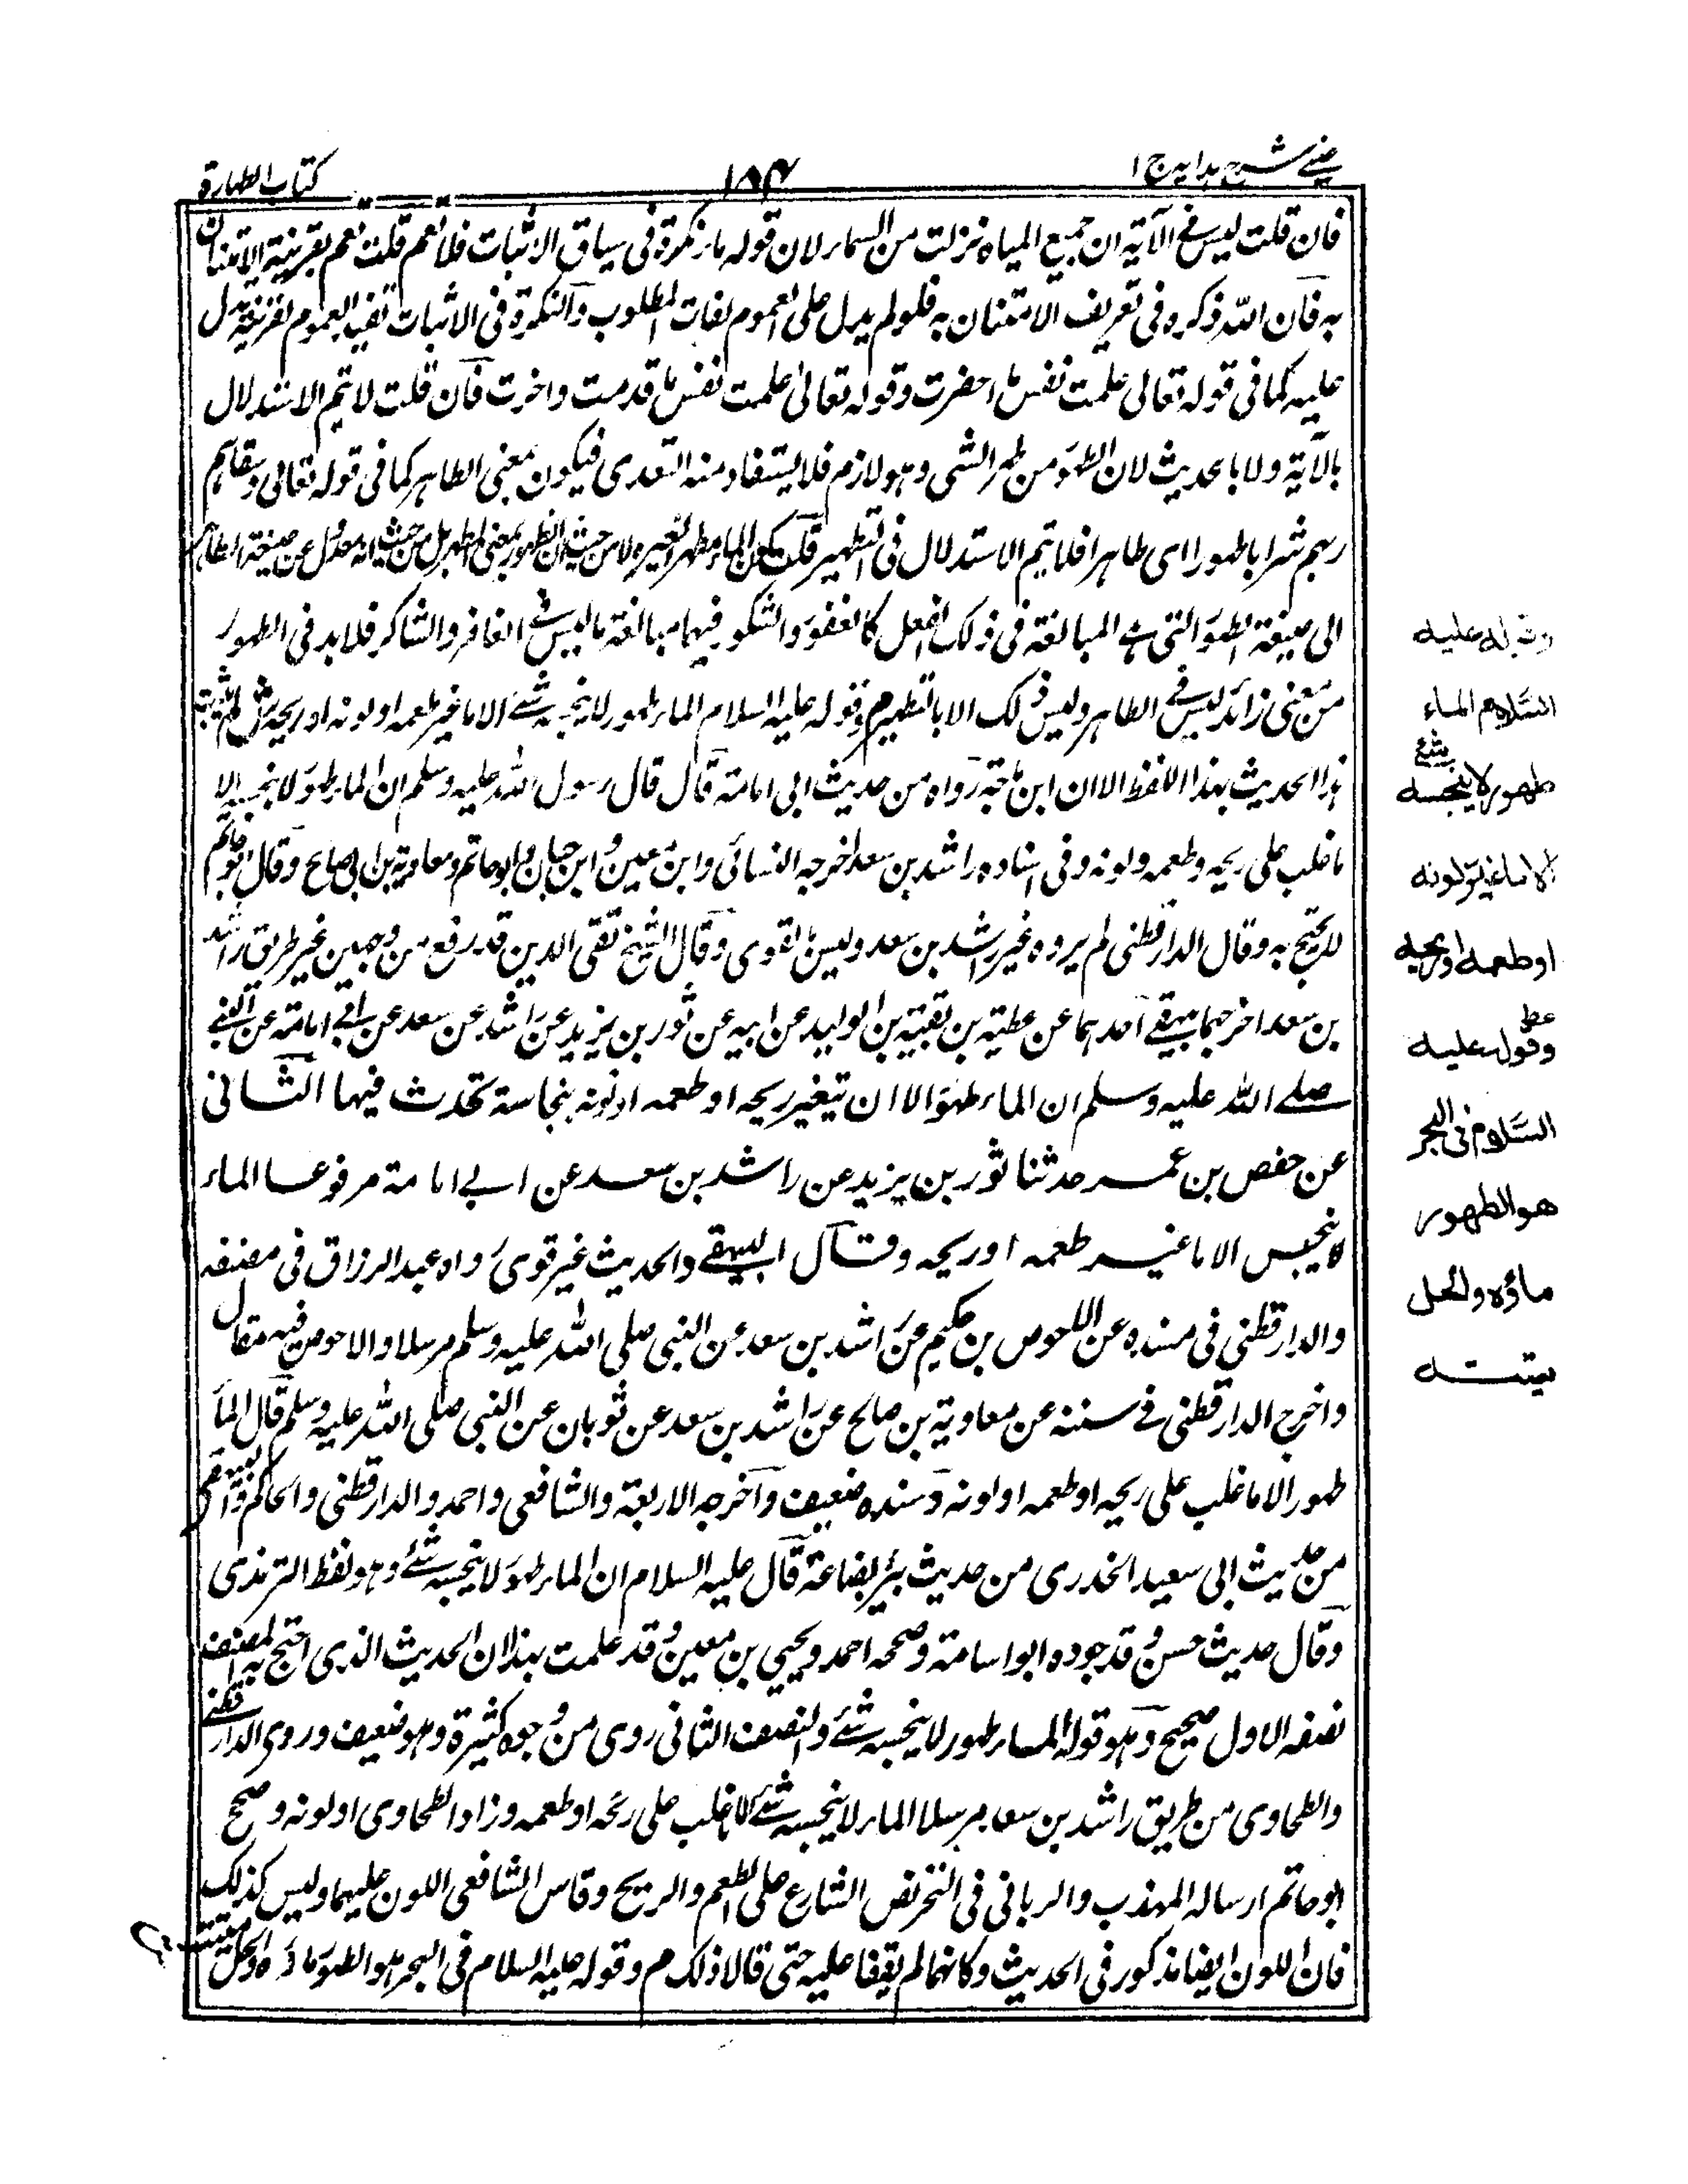 عینے شرح ہدایہ ج ۱
۱۵۴
کتاب الطہارة
فان قلت ليس في الآية ان جميع المياه نزلت من السماء لان قوله ماء نكرة في سياق الاثبات فلا تعم قلت تعم بقرينة الامتنان
به فان الله ذكره في تعريف الامتنان به فلو لم يدل على العموم لفات المطلوب والنكرة في الاثبات تفيد العموم بقرينة تدل
عليه كما في قوله تعالى علمت نفس ما احضرت وقوله تعالى علمت نفس ما قدمت واخرت فان قلت لا يتم الاستدلال
بالآية ولا بالحديث لان الطهور من طهر الشي وهو لازم فلا يستفاد منه التعدي فيكون بمعنى الطاهر كما في قوله تعالى وسقاهم
ربهم شرابا طهورا اى طاهرا فلا يتم الاستدلال في التطهير قلت يكون الماء مطهرا لغيره لا من حيث ان الطهور بمعنى المطهر بل من حيث انه معدول عن صيغة الطاهر
الى صيغة الطهور التي هي المبالغة في ذلك الفعل كالغفور والشكور فيهما مبالغة ما ليس في الغافر والشاكر فلا بد في الطهور
من معنى زائد ليس في الطاهر وليس ذلك الا بالتطهير م وقوله عليه السلام الماء طهور لا ينجسه شئ الا ما غير طعمه او لونه او ريحه ش لم يثبت
هذا الحديث بهذا اللفظ الا ان ابن ماجة رواه من حديث ابى امامة قال قال رسول الله عليه وسلم ان الماء طهور لا ينجسه الا
ما غلب على ريحه وطعمه ولونه وفي اسناده راشد بن سعد اخرجه النسائى وابن معين وابن حبان وابو حاتم ومعاوية بن ابى صالح وقال ابو حاتم
لا يحتج به وقال الدارقطنى لم يروه غير راشد بن سعد وليس بالقوى وقال الشيخ تقى الدين قد رفع من وجهين غير طريق راشد
بن سعد اخرجهما البيهقي احدهما عن عطية بن بقية بن الوليد عن ابيه عن ثور بن يزيد عن راشد بن سعد عن ابي امامة عن النبي
صلے الله عليه وسلم ان الماء طهور الا ان تيغير ريحه او طعمه او لونه بنجاسة تحدث فيها الثانى
عن حفص بن عمر حدثنا ثور بن يزيد عن راشد بن سعد عن ابي امامة مرفوعا الماء
لا ينجس الا ما غير طعمه او ريحه وقال البيهقے والحديث غير قوى رواه عبد الرزاق في مصنفه
والدارقطني في مسنده عن اللحوص بن حكيم عن راشد بن سعد عن النبي صلى الله عليه وسلم مرسلا والاحوص فيه مقال
واخرج الدارقطني في سننه عن معاوية بن صالح عن راشد بن سعد عن ثوبان عن النبي صلى الله عليه وسلم قال الماء
طهور الا ما غلب على ريحه او طعمه او لونه وسنده ضعيف واخرجه الاربعة والشافعي واحمد والدارقطني والحاكم والبيهقي
من حديث ابى سعيد الخدرى من حديث بئر بضاعة قال عليه السلام ان الماء طهور لا ينجسه شئ وهو لفظ الترمذى
وقال حديث حسن وقد جوده ابو اسامة وصححه احمد ويحيي بن معين وقد علمت بهذا ان الحديث الذى احتج به المصنف
نصفه الاول صحيح وهو قوله الماء طهور لا ينجسه شئ والنصف الثانى روى من وجوه كثيرة وهو ضعيف وروى الدارقطنے
والطحاوى من طريق راشد بن سعد مرسلا الماء لا ينجسه شئ الا ما غلب على ريحه او طعمه وزاد الطحاوى او لونه وصحح
ابو حاتم ارساله المهذب والربانى في التخر نص الشارع على الطعم والريح وقاس الشافعي اللون عليهما وليس كذلك
فان اللون ايضا مذكور في الحديث وكانهما لم يقفا عليه حتى قالا ذلك م وقوله عليه السلام في البحر هو الطهور ماؤه والحل ميتته
وقوله عليه
السَّلام الماء
طهور لا ينجسه شئ
الا ما غير لونه
او طعمه او ريحه
وقوله عليه
السَّلام في البحر
هو الطهور
ماؤه والحل
ميتته